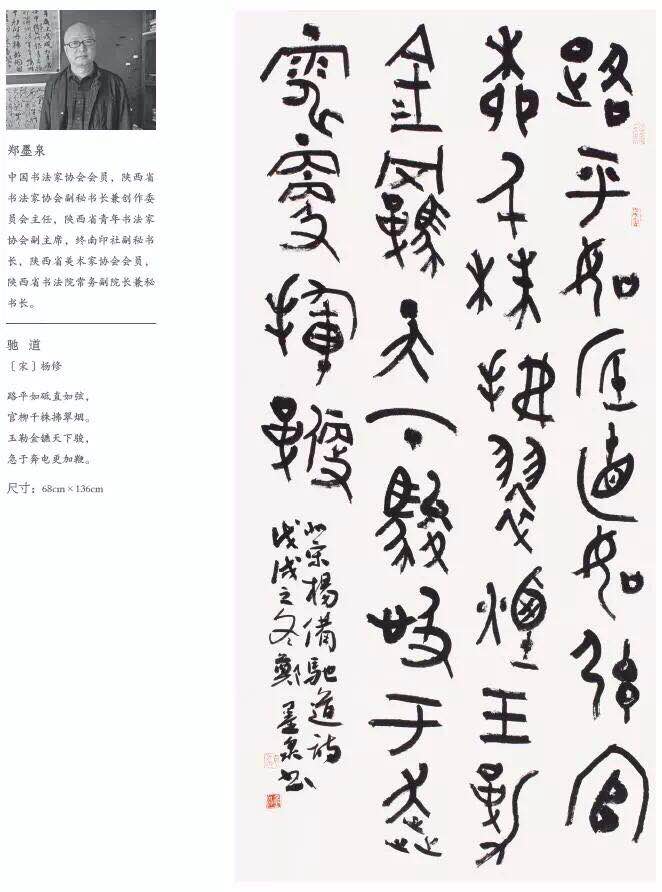 郑墨泉
中国书法家协会会员，陕西省
书法家协会副秘书长兼创作委
员会主任，陕西省青年书法家
协会副主席，终南印社副秘书
长，陕西省美术家协会会员，
陕西省书法院常务副院长兼秘
书长。
驰 道
〔宋〕杨修
路平如砥直如弦，
官柳千株拂翠烟。
玉勒金镳天下骏，
急于奔电更加鞭。
尺寸：68cm×136cm
路平如厎直如弦官
柳千株拂翠煙玉勒
金鑣天下駿急于奔
電更揮鞭
北宋楊備馳道詩
戊戌之冬鄭墨泉書